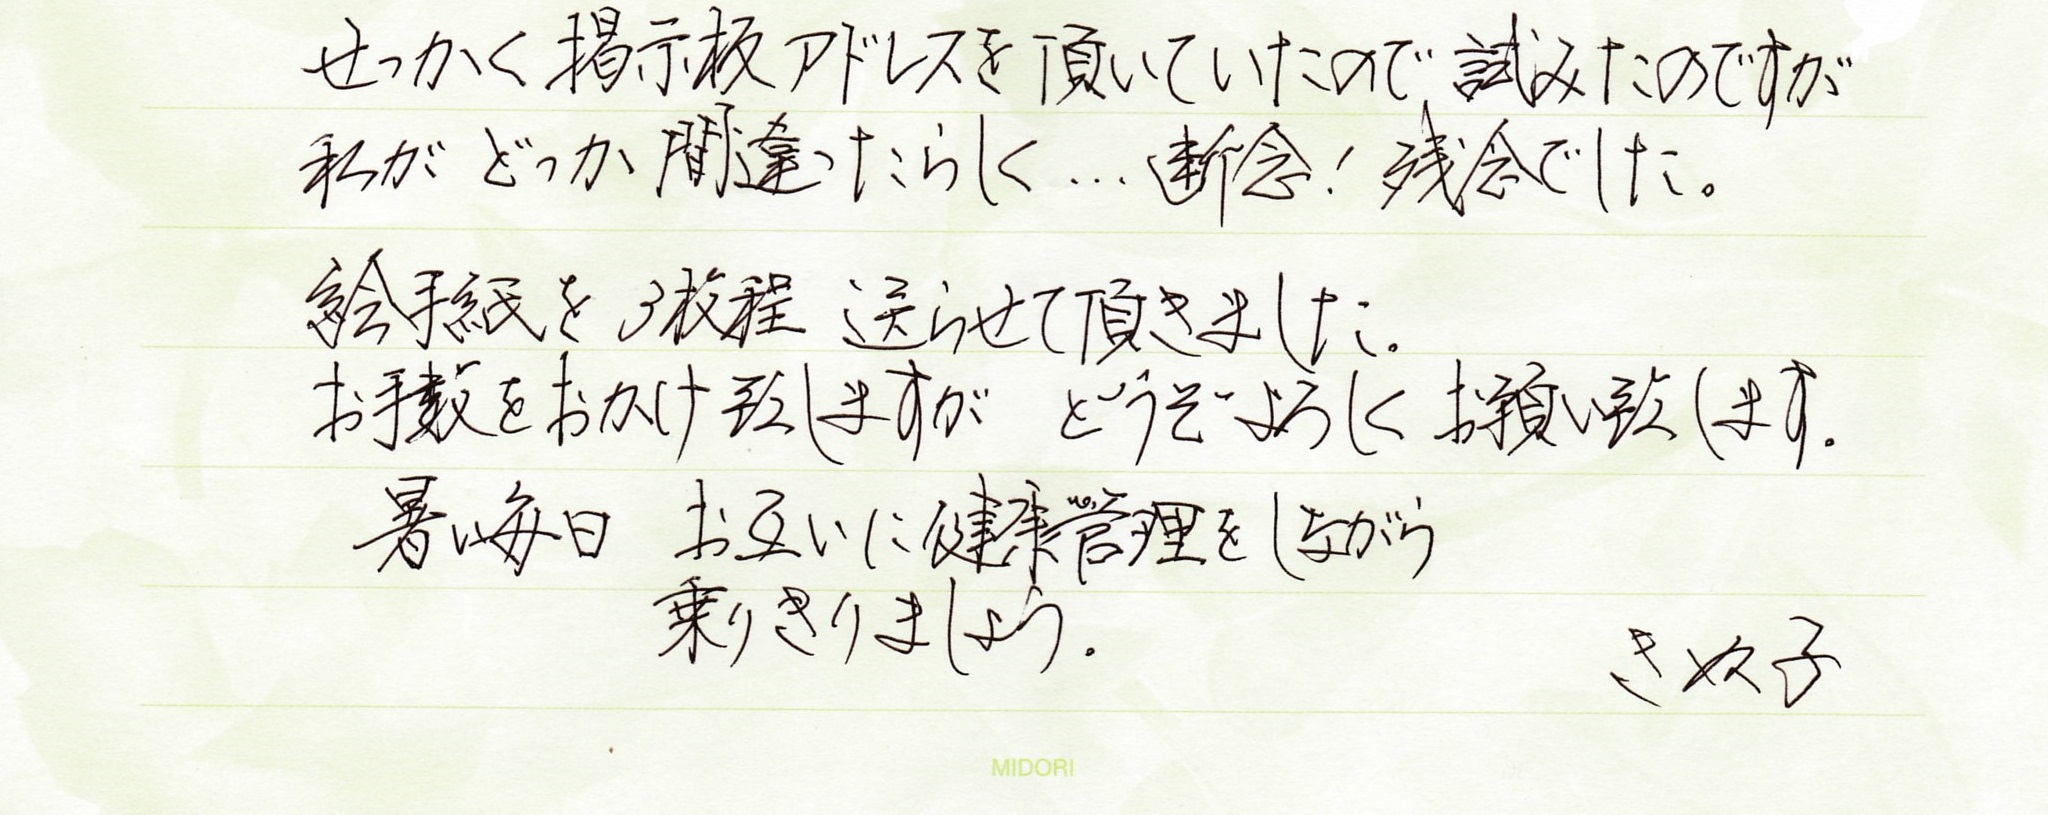 せっかく掲示板アドレスを頂いていたので試みたのですが
私がどっか間違ったらしく…断念！残念でした。
絵手紙を3枚程 送らせて頂きました。
お手数をおかけ致しますが どうぞよろしくお願い致します。
暑い毎日 お互いに健康管理をしながら
乗りきりましょう。
きぬ子
MIDORI